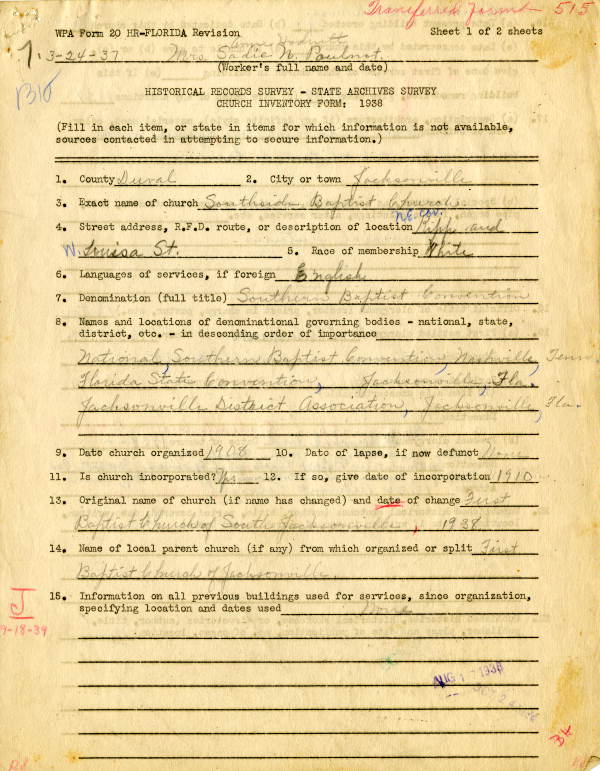 Transferred Journal - 515
WPA Form 20 HR-FLORIDA Revision Sheet 1 of 2 sheets
1. 3-24-37 Mrs. Sadie N. Poulnot
(Worker's full name and date)
HISTORICAL RECORDS SURVEY - STATE ARCHIVES SURVEY
CHURCH INVENTORY FORM: 1938
(Fill in each item, or state in items for which information is not available,
sources contacted in attempting to secure information.)
1. County Duval 2. City or town Jacksonville
3. Exact name of church Southside Baptist Church
N.E. cor.
4. Street address, R.F.D. route, or description of location Hipps and
W. Louisa St. 5. Race of membership White
6. Languages of services, if foreign English
7. Denomination (full title) Southern Baptist Convention
8. Names and locations of denominational governing bodies - national, state,
district, etc. - in descending order of importance
National, Southern Baptist Convention, Nashville, Tenn.
Florida State Convention, Jacksonville, Fla.
Jacksonville District Association, Jacksonville, Fla.
9. Date church organized 1908 10. Date of lapse, if now defunct None
11. Is church incorporated? Yes 12. If so, give date of incorporation 1910
13. Original name of church (if name has changed) and date of change First
Baptist Church of South Jacksonville, 1938
14. Name of local parent church (if any) from which organized or split First
Baptist Church of Jacksonville.
15. Information on all previous buildings used for services, since organization,
specifying location and dates used None
J
9-18-39
AUG 1 1938